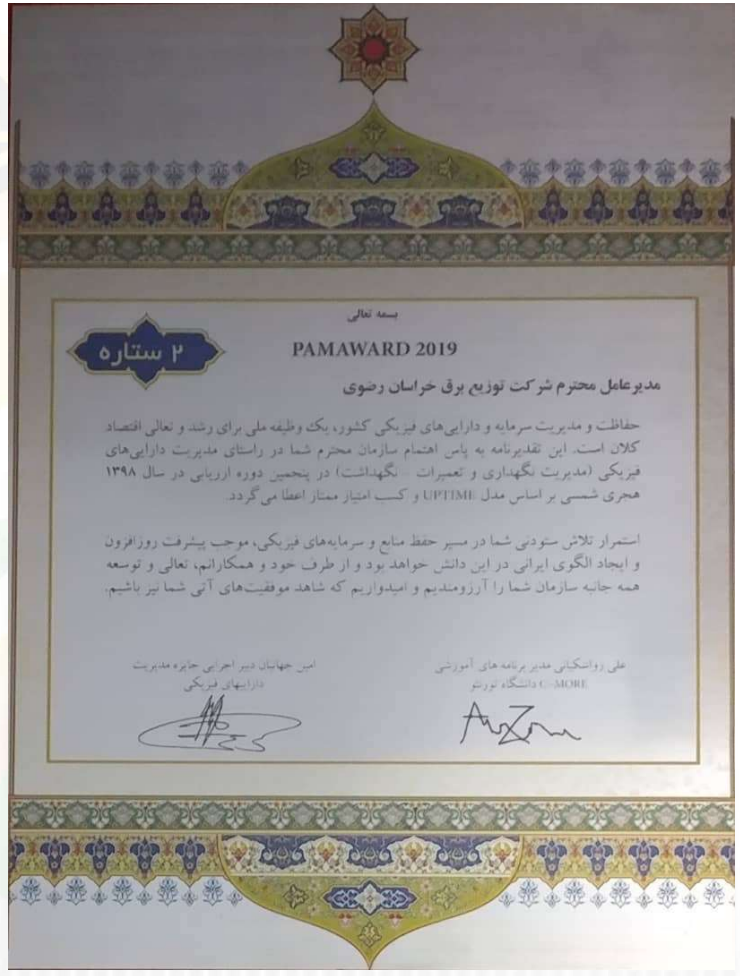 بسمه تعالی
PAMAWARD 2019
۲ ستاره
مدیرعامل محترم شرکت توزیع برق خراسان رضوی
حفاظت و مدیریت سرمایه و دارایی‌های فیزیکی کشور، یک وظیفه ملی برای رشد و تعالی اقتصاد
کلان است. این تقدیرنامه به پاس اهتمام سازمان محترم شما در راستای مدیریت دارایی‌های
فیزیکی (مدیریت نگهداری و تعمیرات - نگهداشت) در پنجمین دوره ارزیابی در سال ۱۳۹۸
هجری شمسی بر اساس مدل UPTIME و کسب امتیاز ممتاز اعطا می‌گردد.
استمرار تلاش ستودنی شما در مسیر حفظ منابع و سرمایه‌های فیزیکی، موجب پیشرفت روزافزون
و ایجاد الگوی ایرانی در این دانش خواهد بود و از طرف خود و همکارانم، تعالی و توسعه
همه جانبه سازمان شما را آرزومندیم و امیدواریم که شاهد موفقیت‌های آتی شما نیز باشیم.
علی زواشکیانی مدیر برنامه های آموزشی
C-MORE دانشگاه تورنتو
امین جهانیان دبیر اجرایی جایزه مدیریت
داراییهای فیزیکی